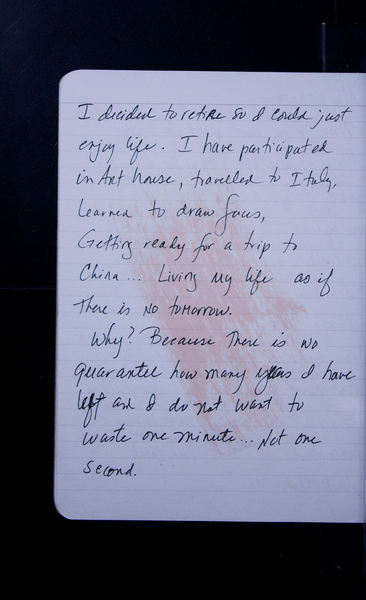 I decided to retire so I could just
enjoy life. I have participated
in Art house, travelled to Italy,
Learned to draw faces,
Getting ready for a trip to
China... Living my life as if
there is no tomorrow.
Why? Because there is no
guarantee how many years I have
left and I do not want to
waste one minute... Not one
second.